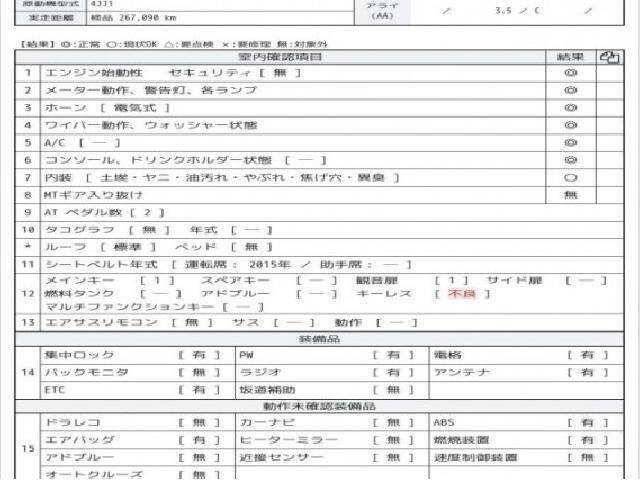 原動機型式 4JJ1
実走距離 積品 267,090 km
アライ (AA) / 3.5 / C /
【結果】◎:正常 ○:現状OK △:要点検 ×:要修理 無:対象外
室内確認項目 結果
1 エンジン始動性 セキュリティ [ 無 ] ◎
2 メーター動作、警告灯、各ランプ ◎
3 ホーン [ 電気式 ] ◎
4 ワイパー動作、ウォッシャー状態 ◎
5 A/C [ ― ] ◎
6 コンソール、ドリンクホルダー状態 [ ― ] ◎
7 内装 [ 土埃・ヤニ・油汚れ・やぶれ・焦げ穴・異臭 ] ○
8 MTギア入り抜け 無
9 AT ペダル数 [ 2 ]
10 タコグラフ [ 無 ] 年式 [ ― ]
* ルーフ [ 標準 ] ベッド [ 無 ]
11 シートベルト年式 [ 運転席: 2015年 / 助手席: ― ]
12 メインキー [ 1 ] スペアキー [ ― ] 観音扉 [ 1 ] サイド扉 [ ― ]
燃料タンク [ ― ] アドブルー [ ― ] キーレス [ 不良 ]
マルチファンクションキー [ ― ]
13 エアサスリモコン [ 無 ] サス [ ― ] 動作 [ ― ]
装備品
14 集中ロック [ 有 ] PW [ 有 ] 電格 [ 有 ]
バックモニタ [ 無 ] ラジオ [ 有 ] アンテナ [ 有 ]
ETC [ 有 ] 坂道補助 [ 無 ]
動作未確認装備品
15 ドラレコ [ 無 ] カーナビ [ 無 ] ABS [ 有 ]
エアバッグ [ 有 ] ヒーターミラー [ 無 ] 燃焼装置 [ 有 ]
アドブルー [ 無 ] 近接センサー [ 無 ] 速度制御装置 [ 無 ]
オートクルーズ [ 無 ]